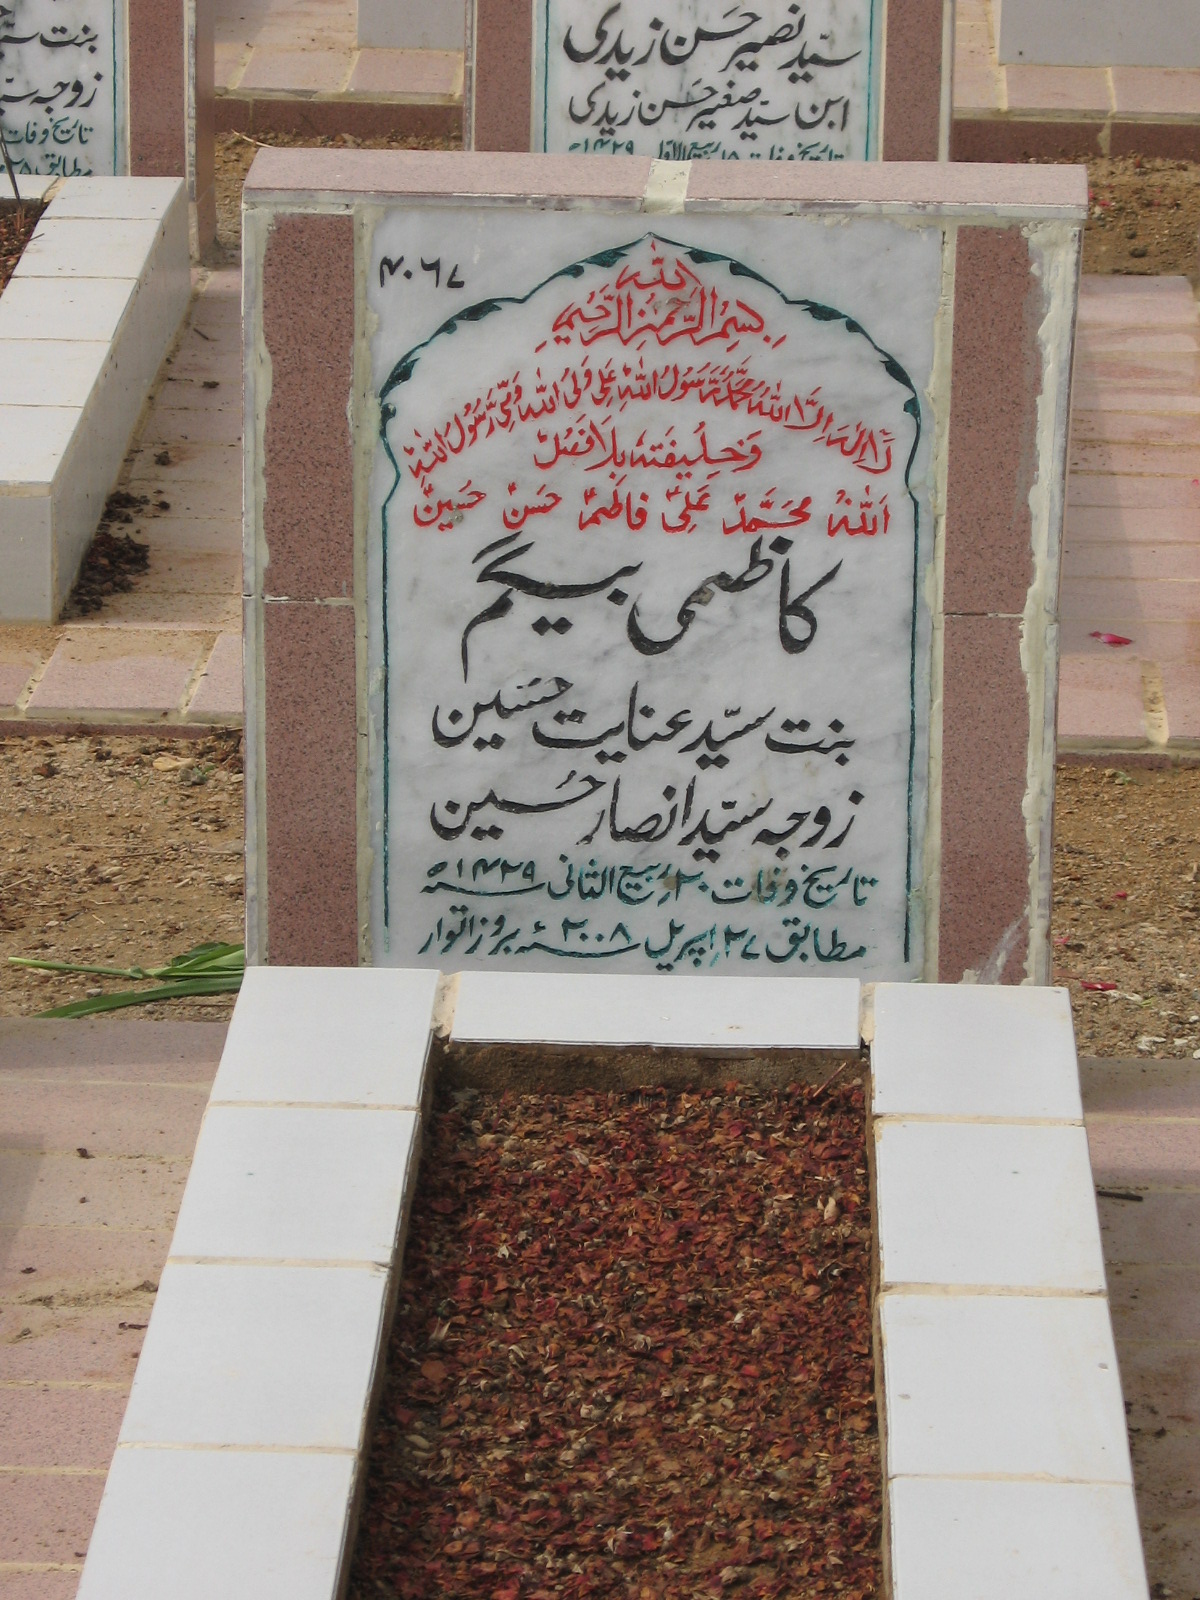 بنت سید
زوجہ سید
تاریخ وفات
مطابق ۲۸
سیّد نصیر حسن زیدی
ابن سیّد صغیر حسن زیدی
تاریخ وفات ۱۸ ربیع الاول ۱۴۲۹ھ
۴۰۶۷
اللہ
بِسْمِ الرَّحْمٰنِ الرَّحِیْمِ
لَا اِلٰهَ اِلَّا اللهُ مُحَمَّدٌ رَّسُولُ اللهِ عَلِیٌّ وَلِیُّ اللهِ وَصِیُّ رَسُولِ اللهِ
وَخَلِیْفَتُهٗ بِلَا فَصْلٍ
اَللهُ مُحَمَّدٌ عَلِیٌّ فاطمہؑ حَسَنٌ حُسَیْنٌ
کاظمی بیگم
بنت سیّد عنایت حسین
زوجہ سیّد انصار حُسین
تاریخ وفات ۲۰؍ ربیع الثانی ۱۴۲۹ھ
مطابق ۲۷؍ اپریل ۲۰۰۸ء بروز اتوار